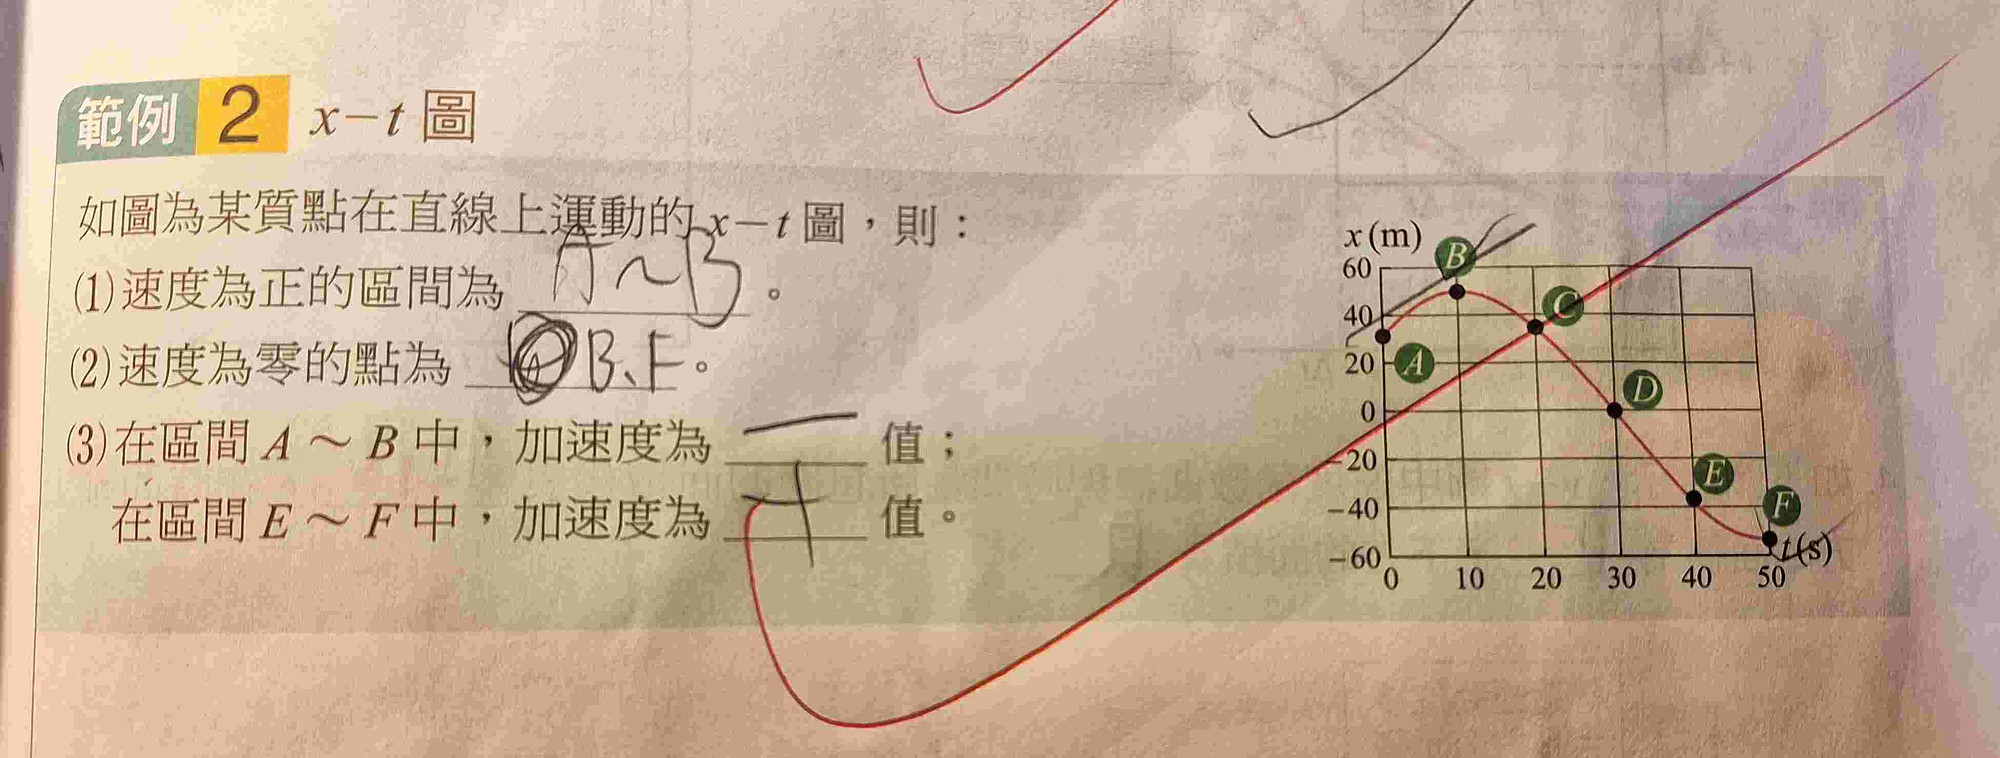 範例 2 x－t 圖
如圖為某質點在直線上運動的 x－t 圖，則：
(1)速度為正的區間為 A～B 。
(2)速度為零的點為 B、F 。
(3)在區間 A～B 中，加速度為 － 值；
在區間 E～F 中，加速度為 ＋ 值。
x(m)
60
40
20
0
－20
－40
－60
A
B
C
D
E
F
0 10 20 30 40 50
t(s)